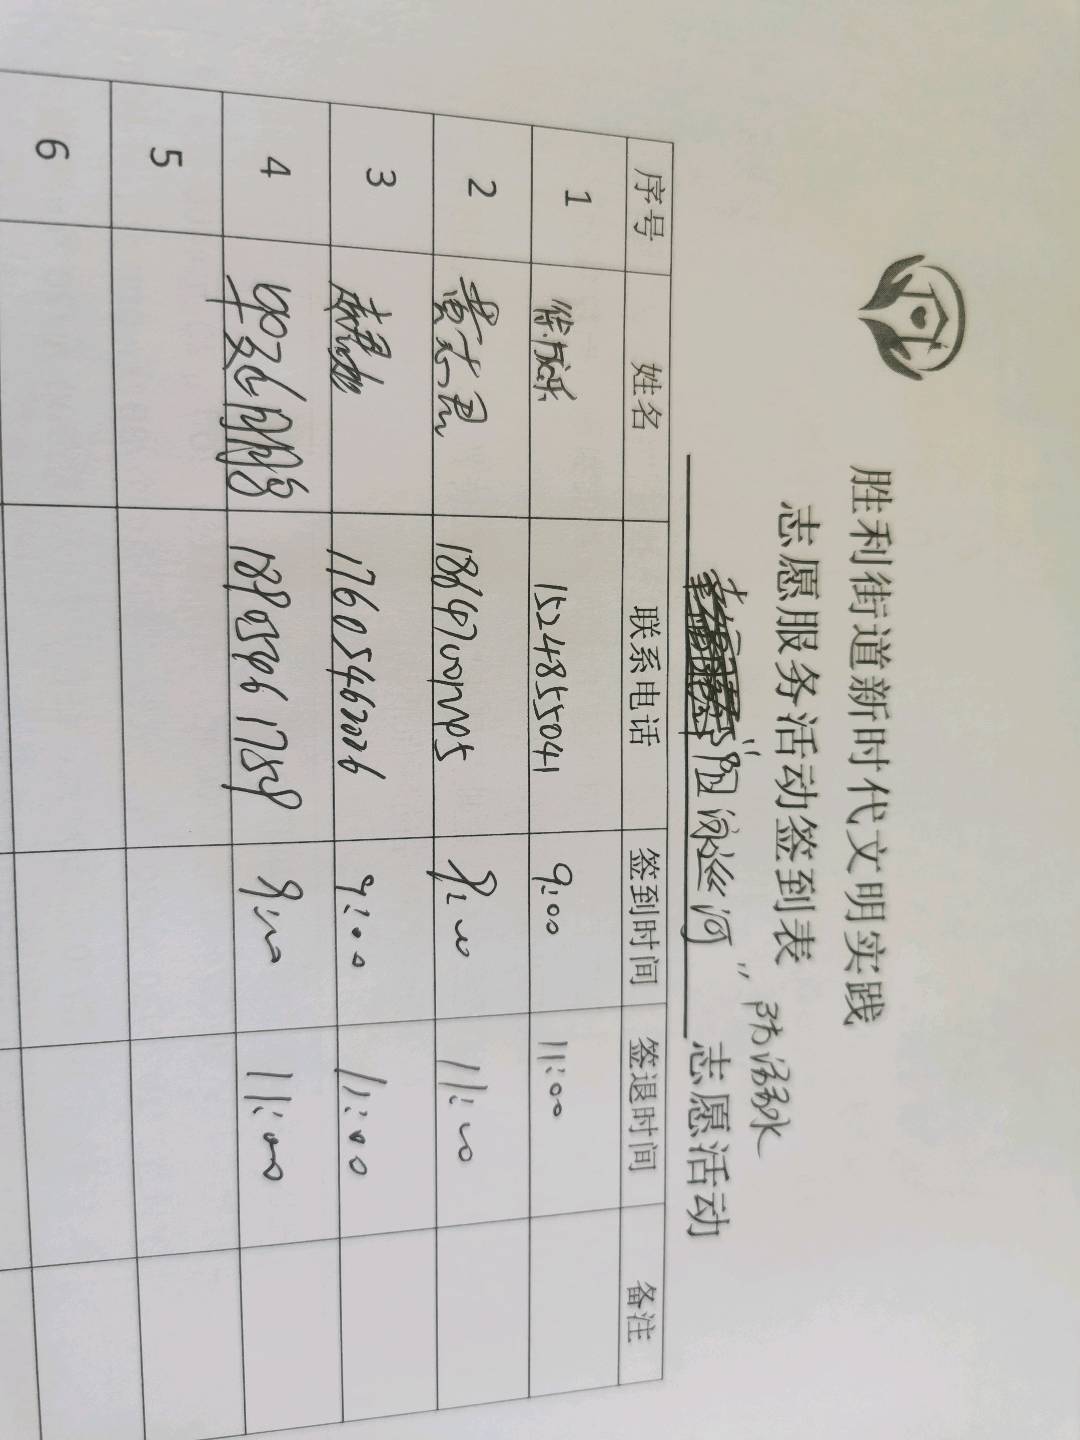 胜利街道新时代文明实践
志愿服务活动签到表
防溺水
"阻泳巡河" 志愿活动
序号 姓名 联系电话 签到时间 签退时间 备注
1 15248555041 9:00 11:00
2 黄志勇 9:00 11:00
3 17605462026 9:00 11:00
4 9:00 11:00
5
6